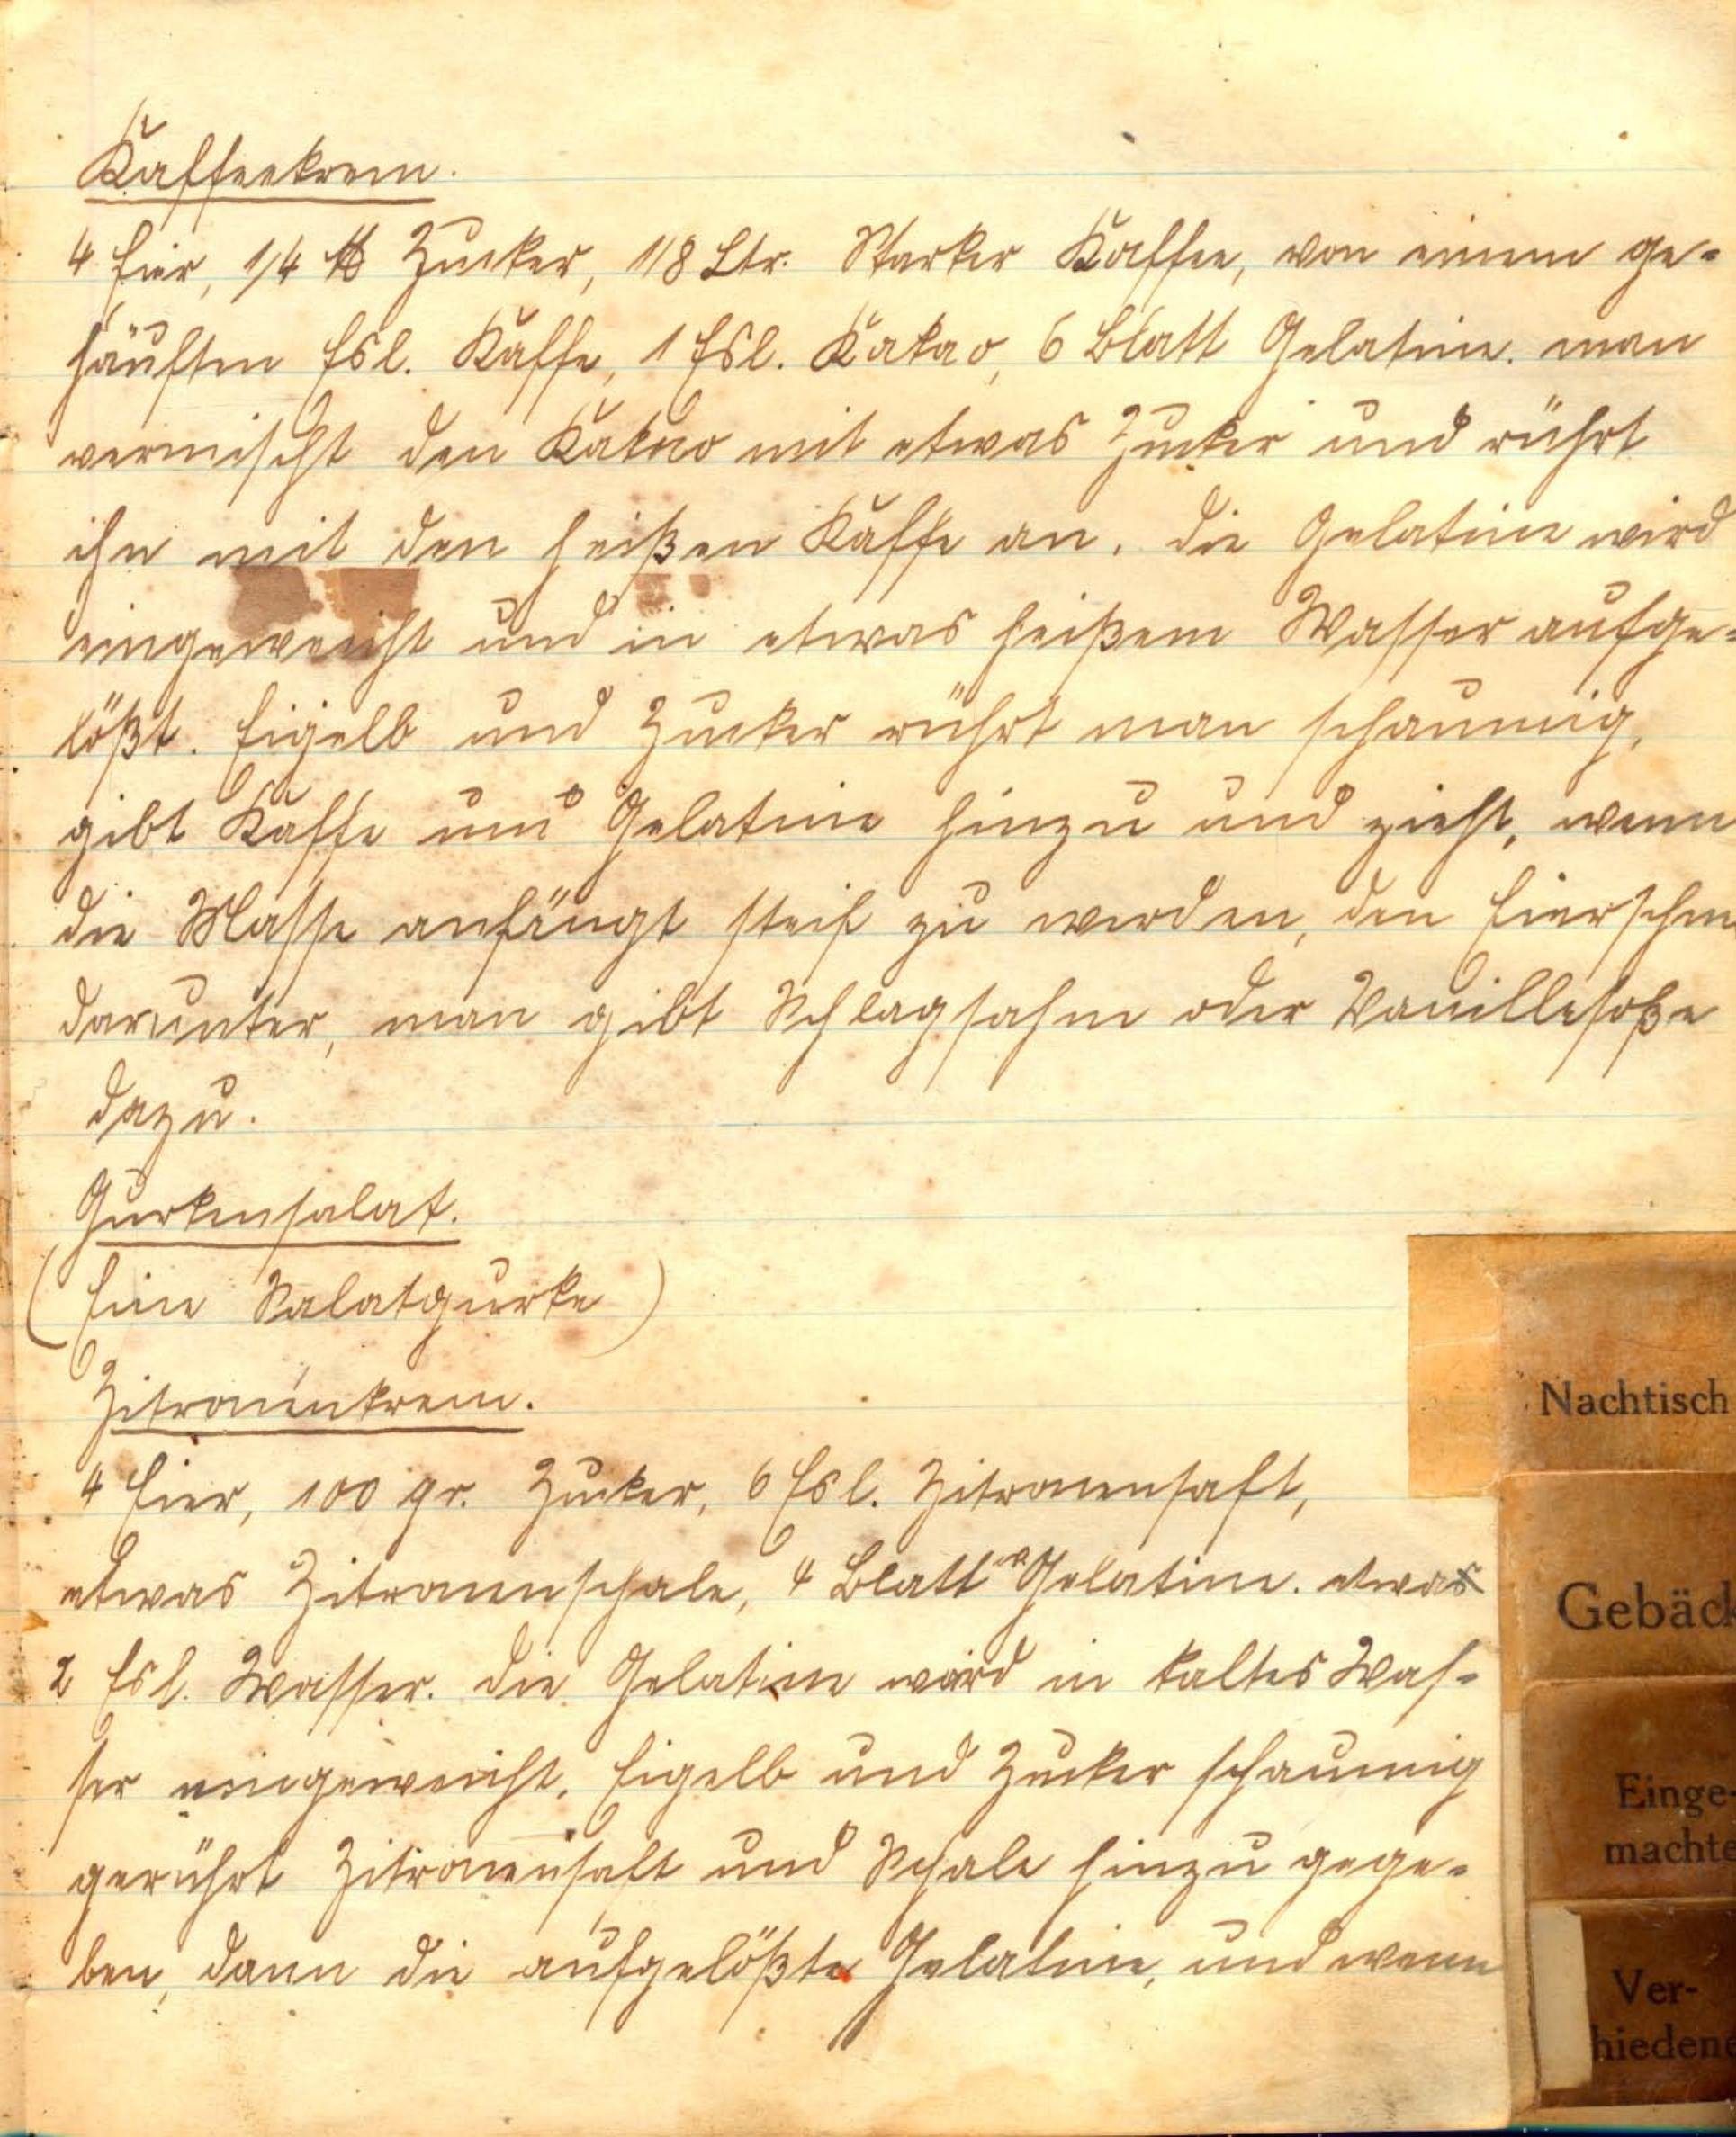 Kaffeekrem.
4 Eier, 1/4 ℔ Zucker, 1/8 Ltr. Starker Kaffee, von einem ge-
häuften Esl. Kaffe, 1 Esl. Kakao, 6 Blatt Gelatine. man
vermischt den Kakao mit etwas Zucker und rührt
ihn mit den heißen Kaffe an. die Gelatine wird
eingeweicht und in etwas heißem Wasser aufge-
lößt. Eigelb und Zucker rührt man schaumig,
gibt Kaffe und Gelatine hinzu und zieht, wenn
die Masse anfängt steif zu werden, den Eierschn
darunter, man gibt Schlagsahne oder Vanillesoße
dazu.
Gurkensalat.
(Eine Salatgurke)
Zitronenkrem.
4 Eier, 100 gr. Zucker, 6 Esl. Zitronensaft,
etwas Zitronenschale, 4 Blatt Gelatine. etwas
2 Esl. Wasser. die Gelatine wird in kaltes Was-
ser eingeweicht. Eigelb und Zucker schaumig
gerührt Zitronensaft und Schale hinzu gege-
ben, dann die aufgelößte Gelatine, und wenn
Nachtisch
Gebäck
Einge-
machte
Ver-
hiedene